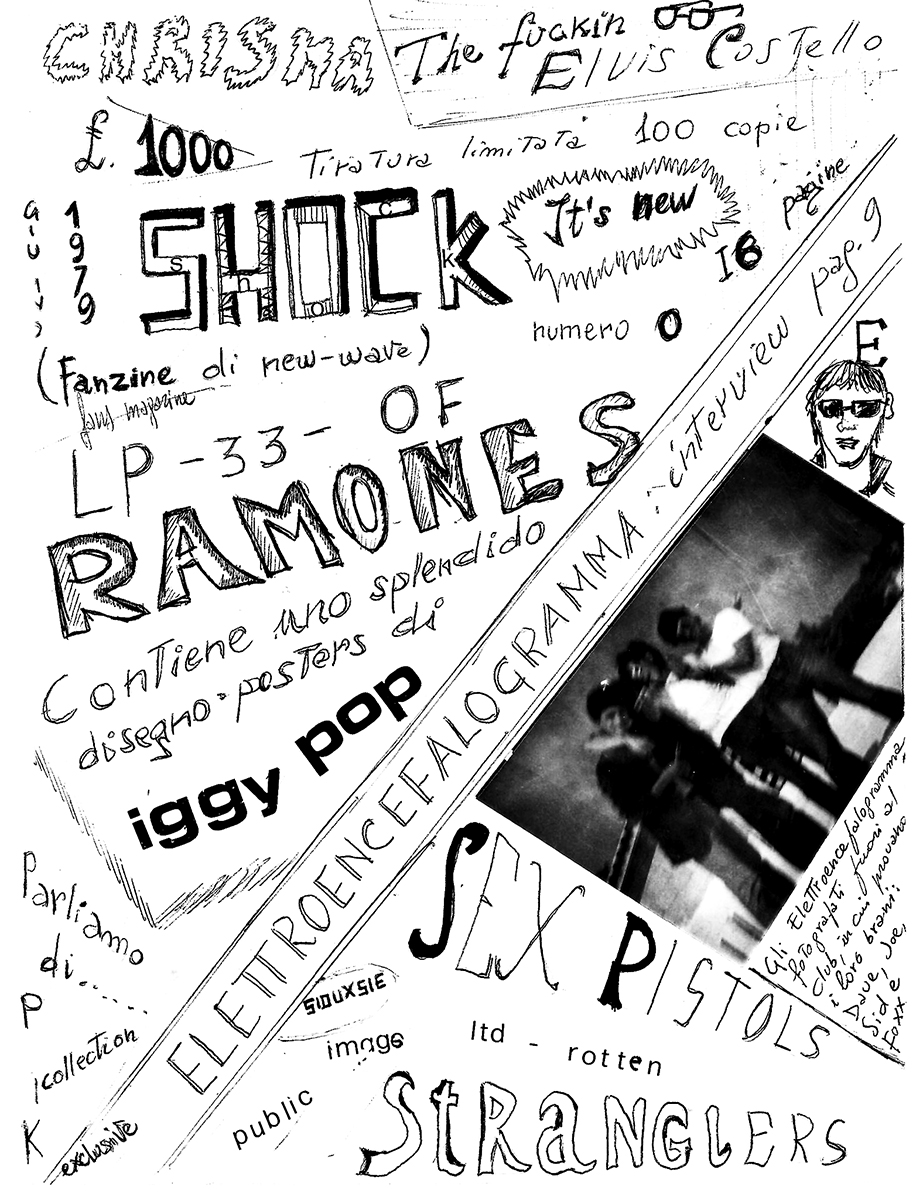 CHRISMA
The fuckin
Elvis Costello
£. 1000
Tiratura limitata 100 copie
1979
SHOCK
It's new
16 pagine
numero 0
(Fanzine di new-wave)
fans magazine
LP -33- OF
RAMONES
Contiene uno splendido
disegno-posters di
iggy pop
ELETTROENCEFALOGRAMMA: interview pag. 9
E
Gli Elettroencefalogramma,
fotografati fuori al
Club, in cui provano
i loro brani:
Dave, Joe,
Sid e
Foxx
SEX PISTOLS
Parliamo
di.....
P
collection
K
exclusive
SIOUXSIE
public image ltd - rotten
StRaNGLERS